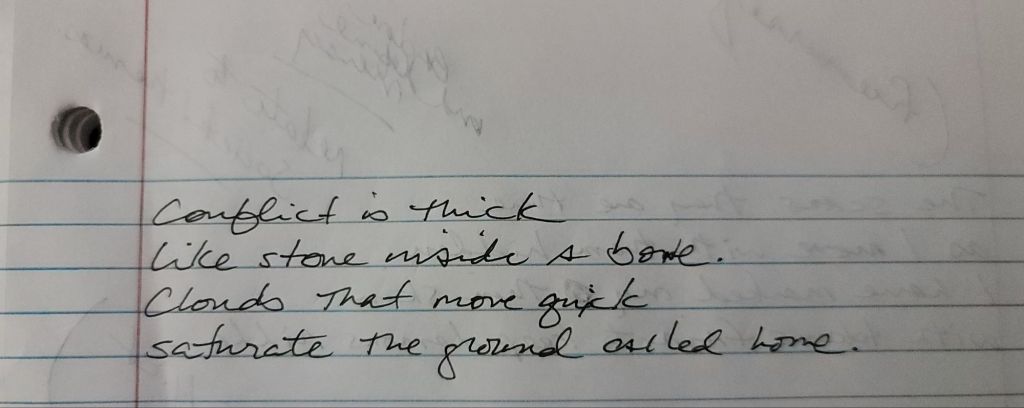 Conflict is thick
like stone inside a bone.
Clouds that move quick
saturate the ground called home.